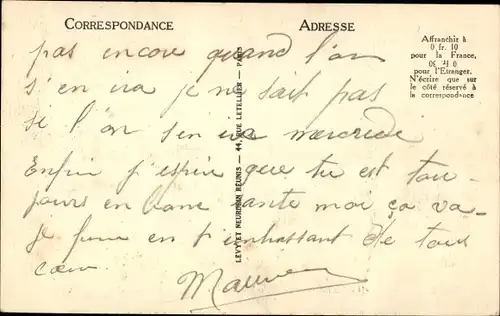 CORRESPONDANCE
ADRESSE
Affranchir à
0 fr. 10
pour la France,
pour l'Etranger.
N'écrire que sur
le côté réservé à
la correspondance
LEVY ET NEURDEIN RÉUNIS — 44, RUE LETELLIER — PARIS
pas encore quand l'on
s'en ira je ne sait pas
si l'on s'en ira mercredi
Enfin j'espère que tu est tou-
jours en bonne sante moi ça va
je en t'embrassant de tout
cœur